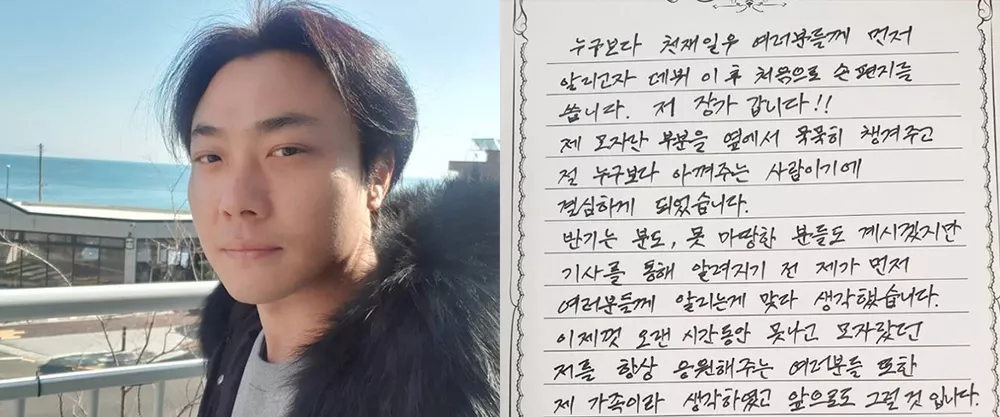 누구보다 천재일우 여러분들께 먼저
알리고자 데뷔 이후 처음으로 손편지를
씁니다. 저 장가 갑니다!!
제 모자란 부분을 옆에서 묵묵히 챙겨주고
절 누구보다 아껴주는 사람이기에
결심하게 되었습니다.
반기는 분도, 못 마땅한 분들도 계시겠지만
기사를 통해 알려지기 전 제가 먼저
여러분들께 알리는게 맞다 생각했습니다.
이제껏 오랜 시간동안 못나고 모자랐던
저를 항상 응원해주는 여러분들 또한
제 가족이라 생각하였고 앞으로도 그럴 것 입니다.